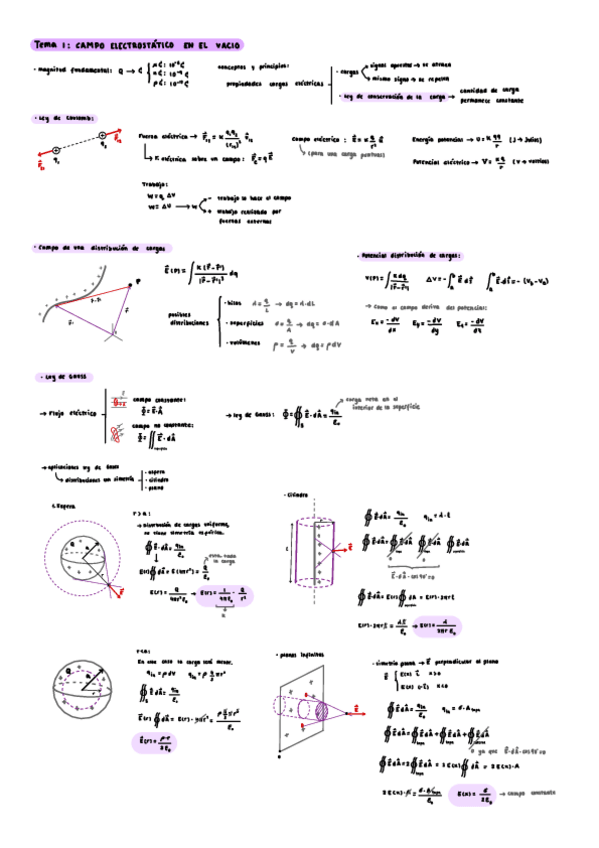 Tema 1: CAMPO ELECTROSTÁTICO EN EL VACIO
· magnitud fundamental: Q → C
μC: 10⁻⁶C
nC: 10⁻⁹C
pC: 10⁻¹²C
conceptos y principios:
propiedades cargas eléctricas
· cargas
signos opuestos → se atraen
mismo signo → se repelen
· Ley de conservación de la carga → cantidad de carga permanece constante
· Ley de Coulomb:
Fuerza eléctrica →
F eléctrica sobre un campo: F = q E
Campo eléctrico:
(para una carga puntual)
Energía potencial → U = K qq/r (J → Julios)
Potencial eléctrico → V = K q/r (V → voltios)
Trabajo:
W = q ΔV
W = ΔU → W
- trabajo lo hace el campo
+ trabajo realizado por fuerzas externas
· Campo de una distribución de cargas
posibles distribuciones
· hilos λ = q/L → dq = λ·dL
· superficies σ = q/A → dq = σ·dA
· volúmenes ρ = q/V → dq = ρdV
· Potencial distribución de cargas:
→ como el campo deriva del potencial:
Ex = -dV/dx Ey = -dV/dy Ez = -dV/dz
· Ley de Gauss
→ Flujo eléctrico
campo constante:
Φ = E·A
campo no constante:
Φ = ∬ E·dA
→ Ley de Gauss: Φ = ∮ E·dA = q_in/ε₀
carga neta en el interior de la superficie
→ aplicaciones ley de Gauss
distribuciones con simetría
· esfera
· cilindro
· plano
1. Esfera
r > a:
→ Distribución de cargas uniforme, se tiene simetría esférica.
∮ E·dA = q_in/ε₀
r < a:
En este caso la carga será menor.
∮ E·dA = q_in/ε₀
E(r) = ρ r/3ε₀
· Cilindro
∮ E·dA = q_in/ε₀ q_in = λ·L
E·dA·cos 90° = 0
E(r)·2πrL = λL/ε₀ → E(r) = λ/2πrε₀
· planos infinitos
→ simetría plana → E perpendicular al plano
E(x) i x>0
E(x) (-i) x<0
∮ E·dA = q_in/ε₀ q_in = σ·A
0 ya que E·dA·cos 90° = 0
E(x) = σ/2ε₀ → campo constante